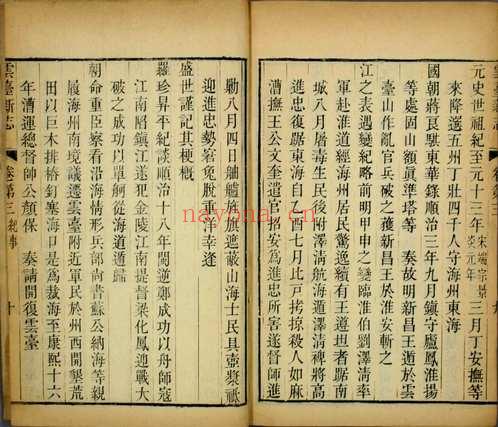 元史世祖紀至元十三年宋端宗景炎元年三月丁安撫等
來降選五州丁壯四千人守海州東海
國朝蔣良騏東華錄順治三年九月鎮守廬鳳淮揚
等處固山額眞準塔等 奏故明新昌王遁於雲
臺山作亂官兵破之獲新昌王至淮安斬之
江之表遇變紀略前明甲申之變淮伯劉澤清率
軍赴淮道經海州居民驚逸續有王遵坦者踞南
城八月屠毒生民後附澤清航海遁澤清裨將高
進忠復踞東海自乙酉七月比戸拷掠殺人如麻
漕撫王公文奎遣官招安爲進忠所害遂督師進
勦八月四日舳艫旌旗遮蔽山海士民具壺漿祗
迎進忠勢窘兔脫重洋幸逢
盛世謹記其梗概
羅珍昇平紀談順治十八年閩逆鄭成功以舟師寇
江南陷鎮江遂犯金陵江南提督梁化鳳迎戰大
破之成功以單舸從海道遁歸
朝命重臣察看沿海情形兵部尚書蘇公納海等親
履海州南境議遷雲臺附近軍民於州西開墾荒
田以巨木排樁釘塞海口是爲裁海至康熙十六
年漕運總督帥公顏保 奏請開復雲臺
雲臺新志 卷第三 紀事 十
nayona.cn